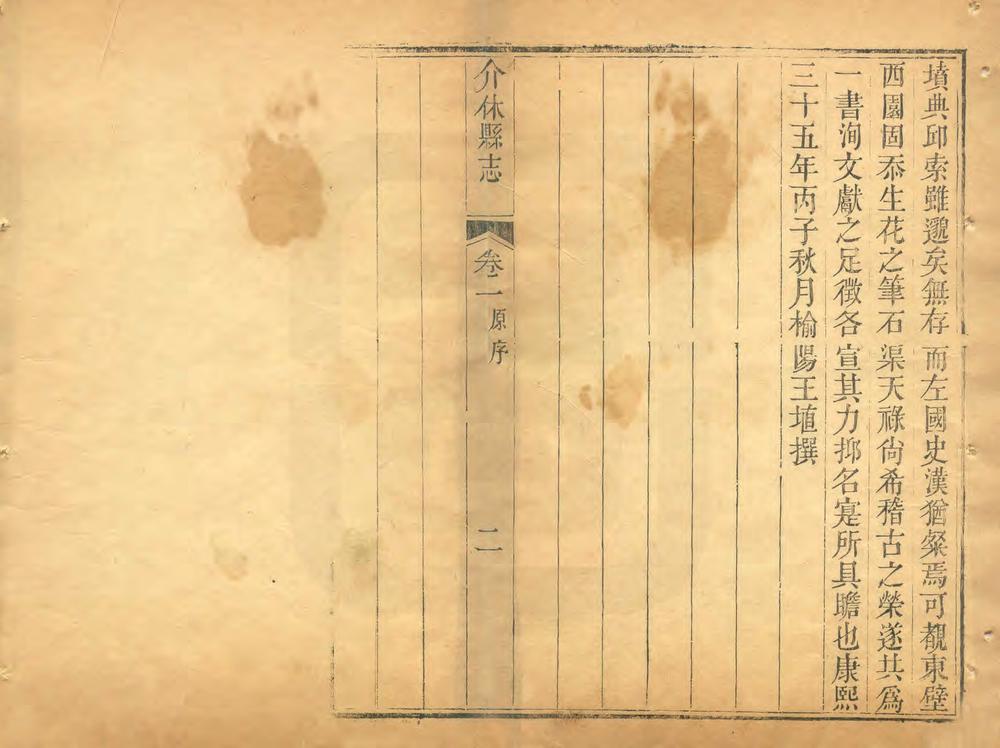 墳典邱索雖邈矣無存而左國史漢猶粲焉可覩東壁
西園固忝生花之筆石渠天祿尙希稽古之榮遂共爲
一書洵文獻之足徵各宣其力抑名寔所具瞻也康熙
三十五年丙子秋月榆陽王埴撰
介休縣志
卷一
原序
二